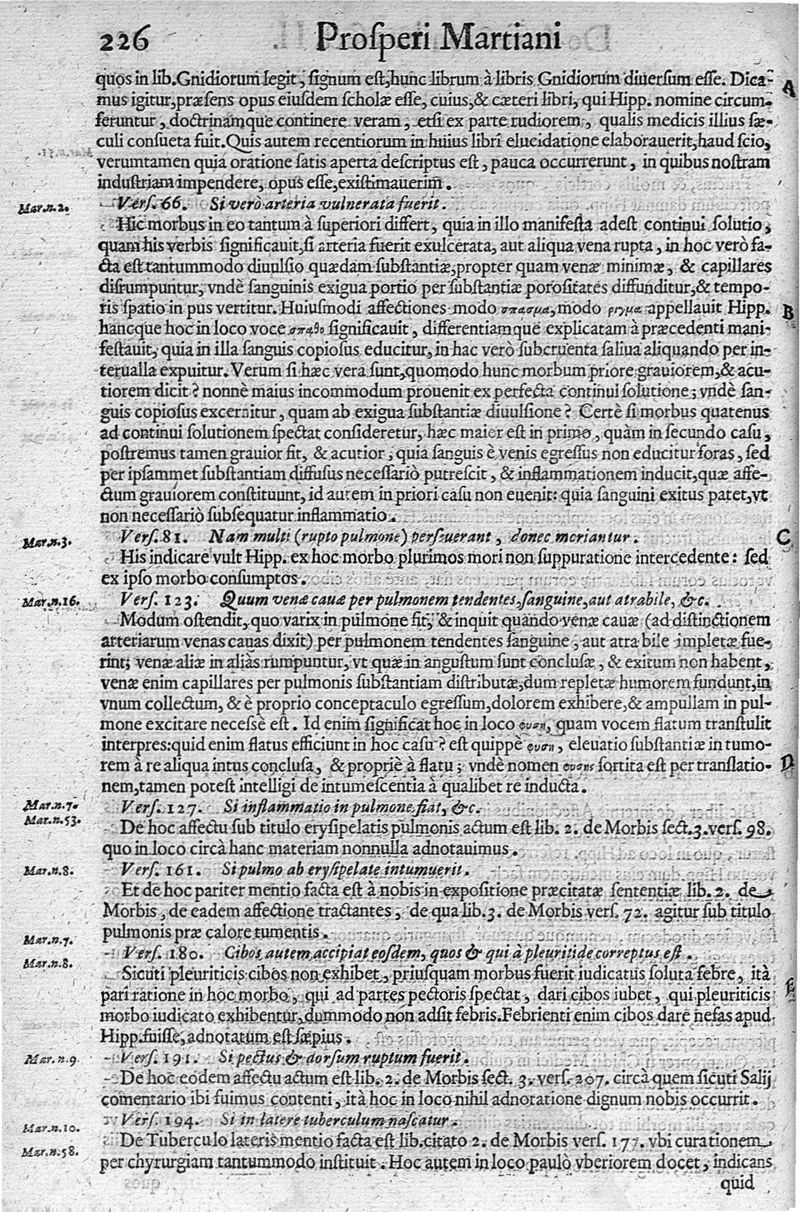 226 Proſperi Martiani
quos in lib.Gnidiorum legit, ſignum eſt,hunc librum à libris Gnidiorum diuerſum eſſe. Dica- A
mus igitur,præſens opus eiuſdem ſcholæ eſſe, cuius,& cæteri libri, qui Hipp. nomine circum-
feruntur, doctrinamque continere veram, etſi ex parte rudiorem, qualis medicis illius ſæ-
culi conſueta fuit. Quis autem recentiorum in huius libri elucidatione elaborauerit,haud ſcio,
verumtamen quia oratione ſatis aperta deſcriptus eſt, pauca occurrerunt, in quibus noſtram
induſtriam impendere, opus eſſe,exiſtimauerim.
Mar.n.2. Verſ.66. Si verò arteria vulnerata fuerit.
Hic morbus in eo tantum à ſuperiori differt, quia in illo manifeſta adeſt continui ſolutio,
quam his verbis ſignificauit,ſi arteria fuerit exulcerata, aut aliqua vena rupta, in hoc verò fa-
cta eſt tantummodo diuulſio quædam ſubſtantiæ,propter quam venæ minimæ, & capillares
diſrumpuntur, vndè ſanguinis exigua portio per ſubſtantiæ poroſitates diffunditur,& tempo-
ris ſpatio in pus vertitur. Huiuſmodi affectiones modo σπασμα,modo ριγμα appellauit Hipp. B
hancque hoc in loco voce ſignificauit, differentiamque explicatam à præcedenti mani-
feſtauit, quia in illa ſanguis copioſus educitur, in hac verò ſubcruenta ſaliua aliquando per in-
terualla expuitur. Verum ſi hæc vera ſunt,quomodo hunc morbum priore grauiorem,& acu-
tiorem dicit? nonnè maius incommodum prouenit ex perfecta continui ſolutione; vndè ſan-
guis copioſus excernitur, quam ab exigua ſubſtantiæ diuulſione? Certè ſi morbus quatenus
ad continui ſolutionem ſpectat conſideretur, hæc maior eſt in primo, quàm in ſecundo caſu,
poſtremus tamen grauior fit, & acutior; quia ſanguis è venis egreſſus non educitur foras, ſed
per ipſammet ſubſtantiam diffuſus neceſſariò putreſcit, & inflammationem inducit,quæ affe-
ctum grauiorem conſtituunt, id autem in priori caſu non euenit: quia ſanguini exitus patet,vt
non neceſſariò ſubſequatur inflammatio.
Mar.n.3. Verſ.81. Nam multi (rupto pulmone) perſeuerant, donec moriantur. C
His indicare vult Hipp. ex hoc morbo plurimos mori non ſuppuratione intercedente: ſed
ex ipſo morbo conſumptos.
Mar.n.16. Verſ.123. Quum venæ cauæ per pulmonem tendentes,ſanguine,aut atrabile, &c.
Modum oſtendit, quo varix in pulmone fit, & inquit quando venæ cauæ (ad diſtinctionem
arteriarum venas cauas dixit) per pulmonem tendentes ſanguine, aut atra bile impletæ fue-
rint; venæ aliæ in aliàs rumpuntur, vt quæ in anguſtum ſunt concluſæ, & exitum non habent,
venæ enim capillares per pulmonis ſubſtantiam diſtributæ,dum repletæ humorem fundunt,in
vnum collectum, & è proprio conceptaculo egreſſum,dolorem exhibere,& ampullam in pul-
mone excitare neceſsè eſt. Id enim ſignificat hoc in loco φυση, quam vocem flatum tranſtulit
interpres:quid enim flatus efficiunt in hoc caſu? eſt quippè φυση, eleuatio ſubſtantiæ in tumo-
rem à re aliqua intus concluſa, & propriè à flatu; vndè nomen φυσης ſortita eſt per tranſlatio- D
nem,tamen poteſt intelligi de intumeſcentia à qualibet re inducta.
Mar.n.7. Verſ.127. Si inflammatio in pulmone fiat, &c.
Mar.n.53. De hoc affectu ſub titulo eryſipelatis pulmonis actum eſt lib. 2. de Morbis ſect.3.verſ. 98.
quo in loco circà hanc materiam nonnulla adnotauimus.
Mar.n.8. Verſ.161. Si pulmo ab eryſipelate intumuerit.
Et de hoc pariter mentio facta eſt à nobis in expoſitione præcitatæ ſententiæ lib. 2. de
Morbis, de eadem affectione tractantes, de qua lib.3. de Morbis verſ. 72. agitur ſub titulo
pulmonis præ calore tumentis.
Mar.n.7. Verſ.180. Cibos autem accipiat eoſdem, quos & qui à pleuritide correptus eſt.
Mar.n.8. Sicuti pleuriticis cibos non exhibet, priuſquam morbus fuerit iudicatus ſoluta febre, ità E
pari ratione in hoc morbo, qui ad partes pectoris ſpectat, dari cibos iubet, qui pleuriticis
morbo iudicato exhibentur,dummodo non adſit febris.Febrienti enim cibos dare nefas apud
Hipp.fuiſſe,adnotatum eſt ſæpius.
Mar.n.9. Verſ.191. Si pectus & dorſum ruptum fuerit.
De hoc eodem affectu actum eſt lib. 2. de Morbis ſect. 3. verſ. 207. circà quem ſicuti Salij
comentario ibi fuimus contenti, ità hoc in loco nihil adnotatione dignum nobis occurrit.
Mar.n.10. Verſ.194. Si in latere tuberculum naſcatur.
Mar.n.58. De Tuberculo lateris mentio facta eſt lib.citato 2. de Morbis verſ. 177. vbi curationem
per chyrurgiam tantummodo inſtituit. Hoc autem in loco paulò vberiorem docet, indicans
quid